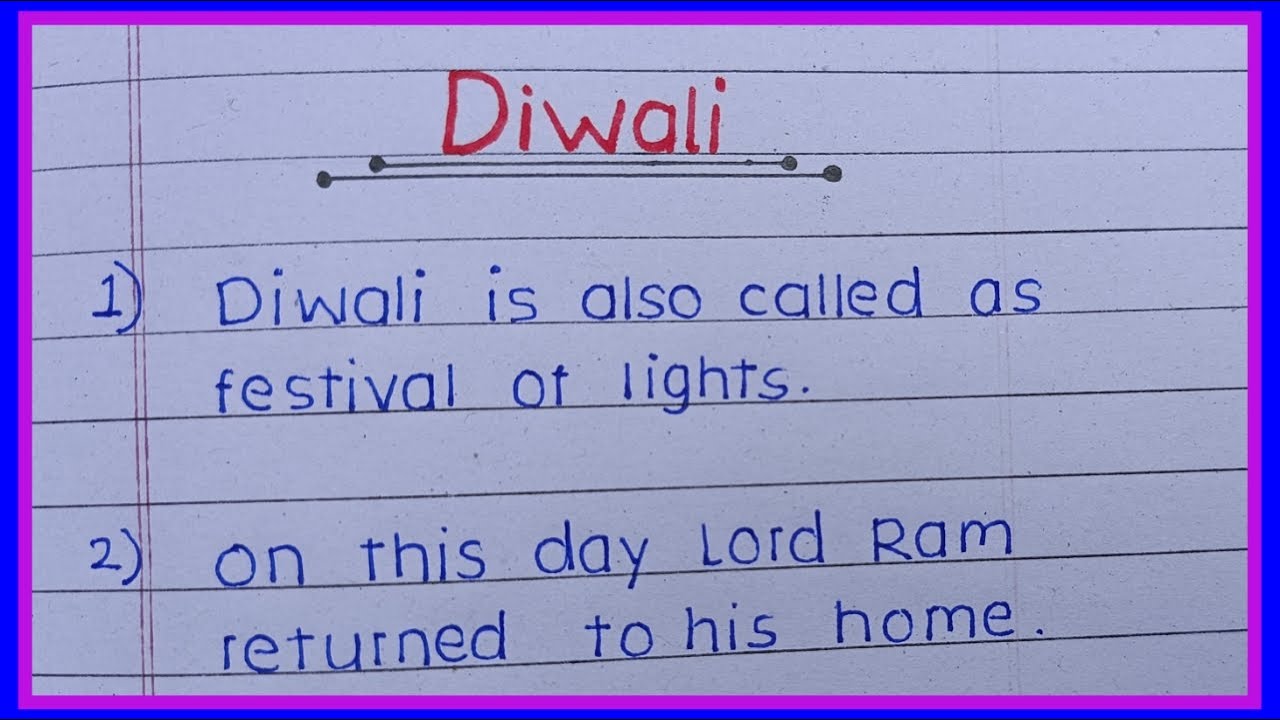 Diwali
1) Diwali is also called as
festival of lights.
2) on this day Lord Ram
returned to his home.